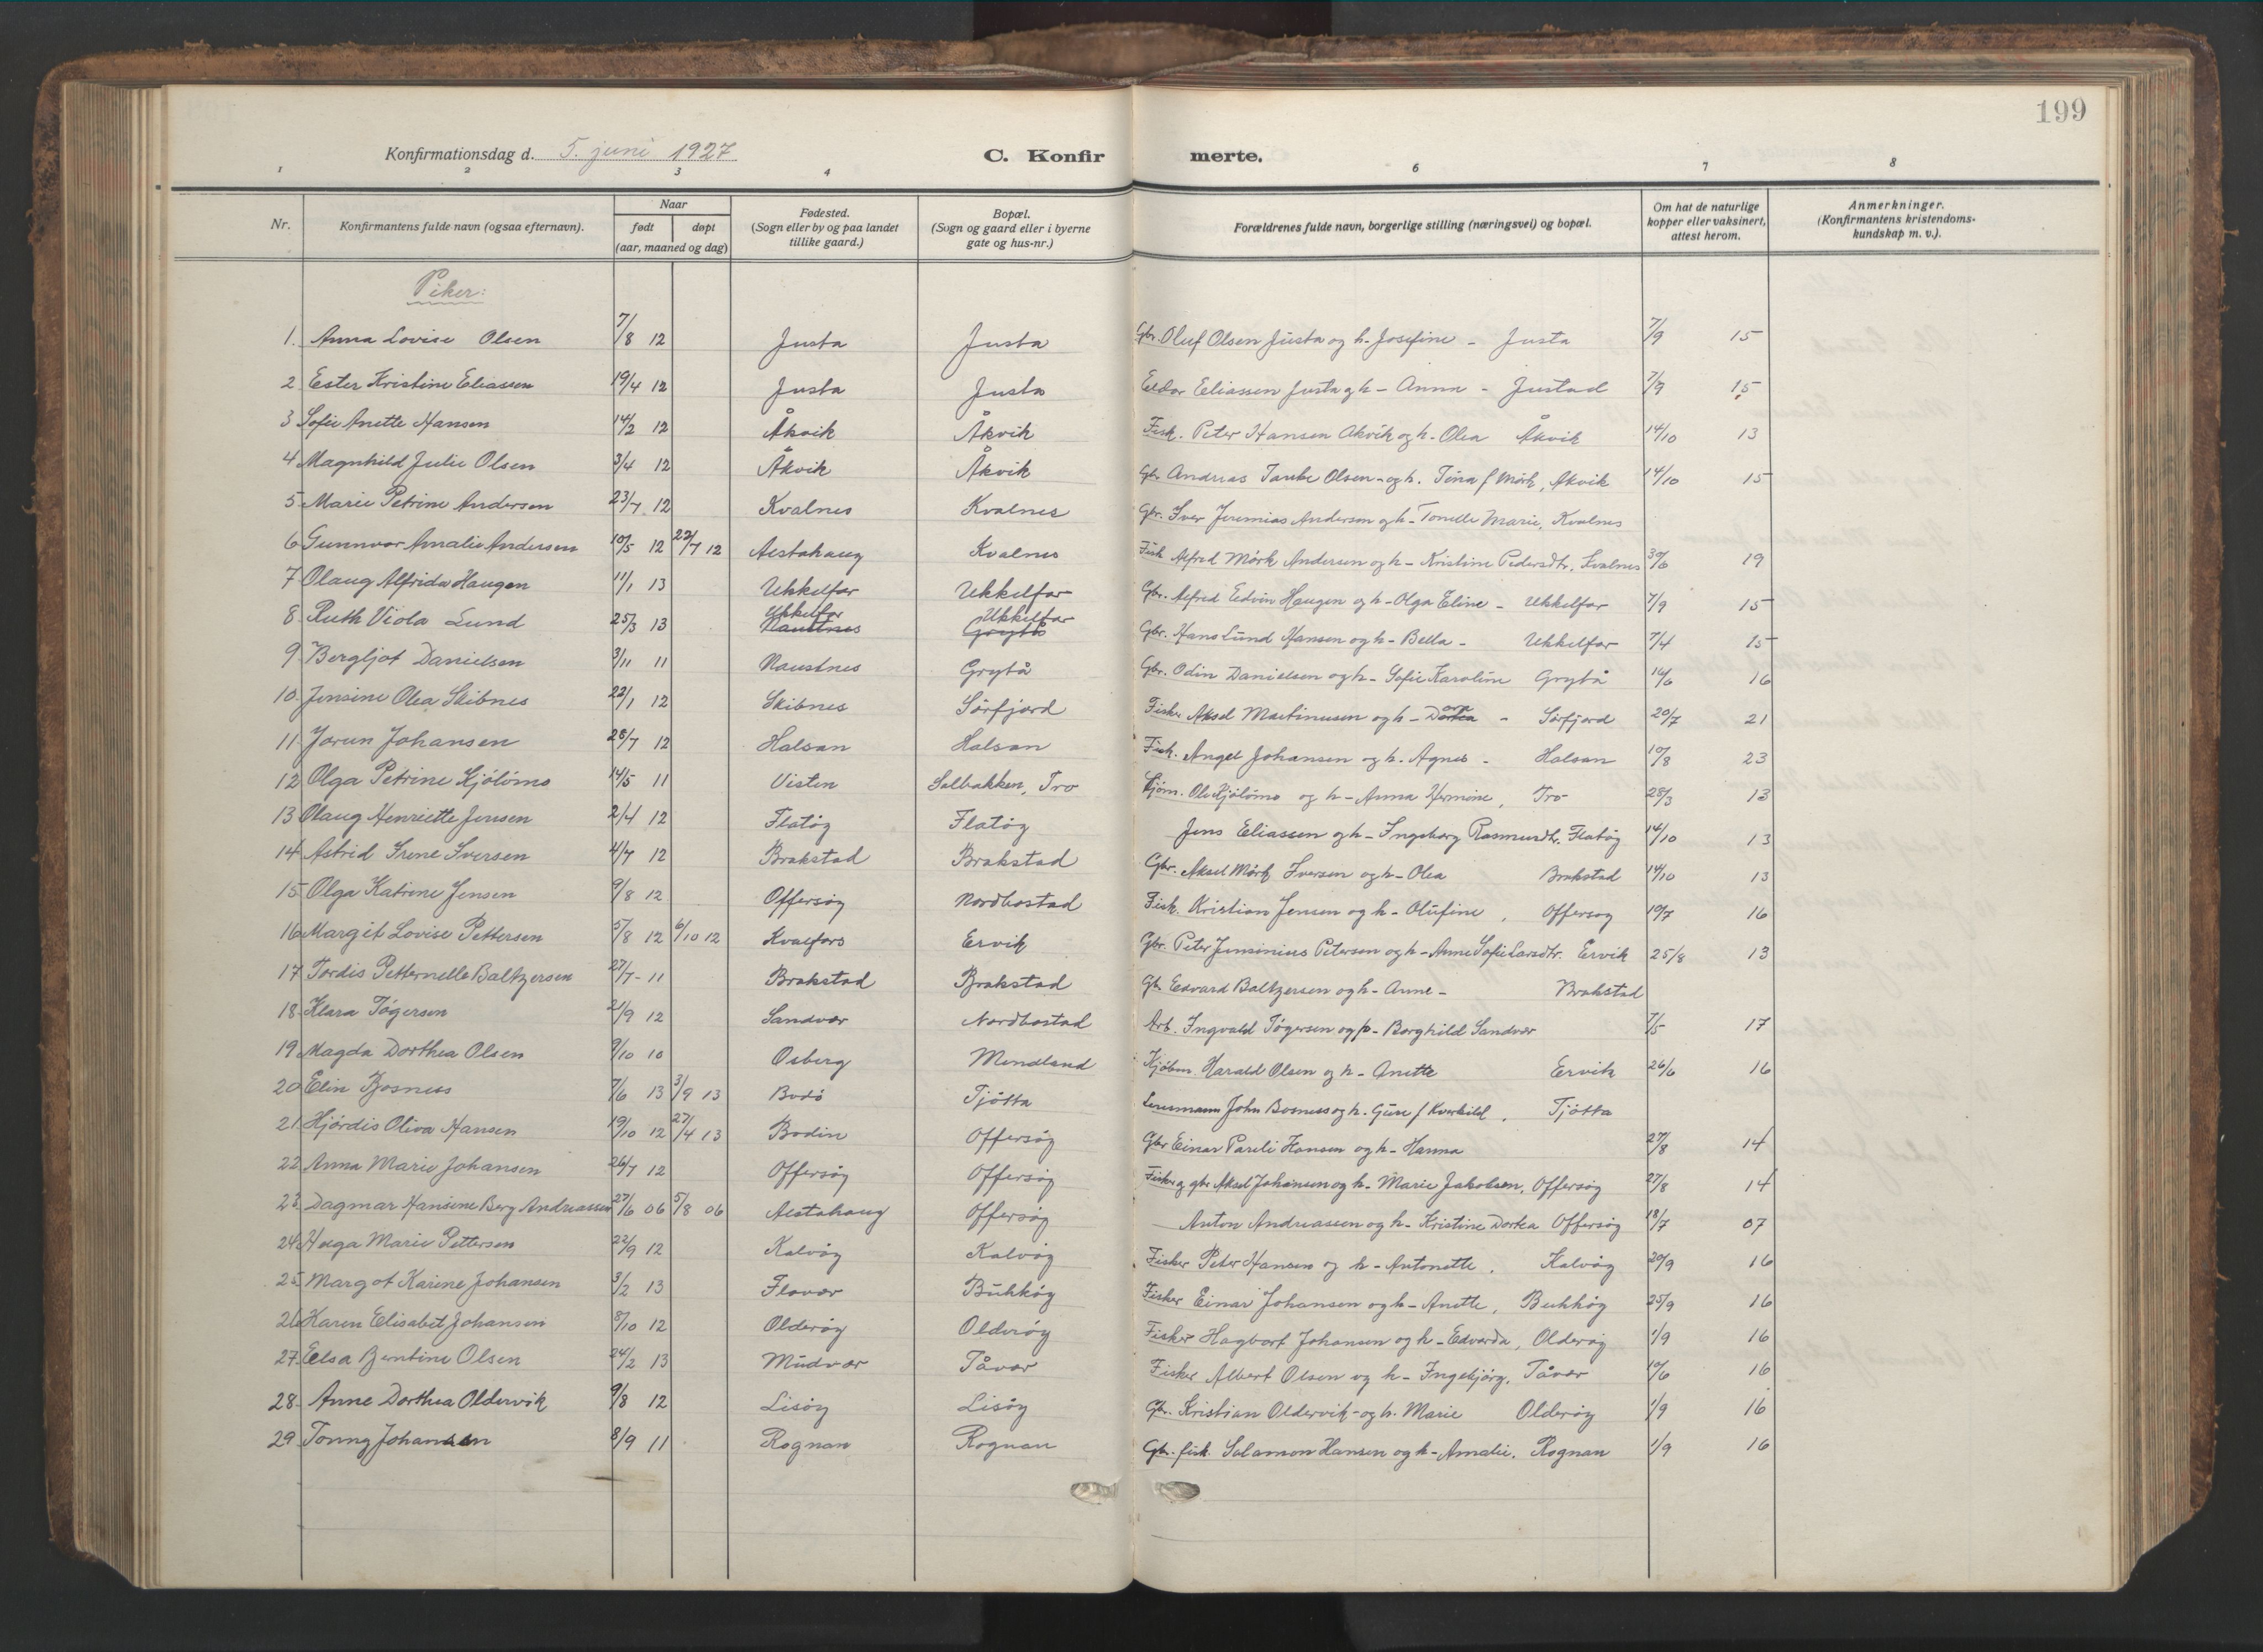 199
Konfirmationsdag d. 5. juni 1927 C. Konfirmerte.
1 2 3 4 6 7 8
Nr. Konfirmantens fulde navn (ogsaa efternavn). Naar født døpt (aar, maaned og dag) Fødested. (Sogn eller by og paa landet tillike gaard.) Bopæl. (Sogn og gaard eller i byerne gate og hus-nr.) Forældrenes fulde navn, borgerlige stilling (næringsvei) og bopæl. Om hat de naturlige kopper eller vaksinert, attest herom. Anmerkninger. (Konfirmantens kristendomskundskap m. v.).
Piker:
1. Anna Lovise Olsen 7/8 12 Justa Justa Gbr. Oluf Olsen Justa og h. Josefine - Justa 7/9 15
2 Ester Kristine Eliassen 19/4 12 Justa Justa Eldor Eliassen Justa og h - Anna - Justad 7/9 15
3 Sofie Anette Hansen 14/2 12 Åkvik Åkvik Fisk. Peter Hansen Åkvik og h. Olea Åkvik 14/10 13
4 Magnhild Julie Olsen 3/4 12 Åkvik Åkvik Gbr Andreas Taube Olsen - og h. Tina f Mørk, Åkvik 14/10 15
5 Marie Petrine Andersen 23/7 12 Kvalnes Kvalnes Gbr. Iver Jeremias Andersen og h - Tonelle Marie, Kvalnes
6 Gunnvor Amalie Andersen 10/5 12 22/7 12 Alstahaug Kvalnes Fisk Alfred Mørk Andersen og h - Kristine Pedersdtr. Kvalnes 30/6 19
7 Olaug Alfrida Haugen 11/1 13 Ukkelfar Ukkelfar Gbr. Alfred Edvin Haugen og h - Olga Eline - Ukkelfar 7/9 15
8. Ruth Viola Lund 25/3 13 Ukkelfar Naustnes Ukkelfar Grytå Gbr. Hans Lund Hansen og h - Bella - Ukkelfar 7/4 15
9. Bergljot Danielsen 3/11 11 Naustnes Grytå Gbr. Odin Danielsen og h - Sofie Karoline Grytå 14/6 16
10. Jensine Olea Skibnes 22/1 12 Skibnes Sørfjord Fisker Aksel Martinusen og h - Dortea - Sørfjord 20/7 21
11. Jorun Johansen 28/7 12 Halsan Halsan Fisk. Angel Johansen og h. Agnes - Halsan 10/8 23
12 Olga Petrine Kjølømo 14/5 11 Visten Solbakken, Tro Ole Kjølømo og h - Anna Hermine, Tro 28/3 13
13 Olaug Henriette Jensen 2/4 12 Flatøy Flatøy Jens Eliassen og h - Ingeborg Rasmusdtr. Flatøy 14/10 13
14 Astrid Irene Iversen 4/7 12 Brakstad Brakstad Gbr. Aksel Mørk Iversen og h - Olea Brakstad 14/10 13
15 Olga Katrine Jensen 9/8 12 Offersøy Nordbostad Fisk. Kristian Jensen og h - Olufine, Offersøy 10/7 16
16 Margit Lovise Pettersen 5/8 12 6/10 12 Kvalfors Ervik Gbr. Peter Petersen og h - Anne Sofie Larsdtr. Ervik 25/8 13
17 Tordis Petternelle Baltzersen 27/7 - 11 Brakstad Brakstad Gbr Edvard Baltzersen og h - Anne - Brakstad
18. Klara Tøgersen 21/9 12 Sandvær Nordbostad Arb. Ingvald Tøgersen og p - Borghild Sandvær 7/5 17
19. Magda Dorthea Olsen 9/10 10 Osberg Mindland Kjøbm. Harald Olsen og h - Anette Ervik 26/6 16
20 Elin Bosness 7/6 13 3/9 13 Bodø Tjøtta Lensmann John Bosness og h. Gure f Kverkild, Tjøtta
21. Hjørdis Oliva Hansen 19/10 12 27/4 13 Bodin Offersøy Gbr Einar Pareli Hansen og h - Hanna 27/8 14
22 Anna Marie Johansen 26/7 12 Offersøy Offersøy Fisker og gbr Aksel Johansen og h - Marie Jakobsen, Offersøy 27/8 14
23. Dagmar Hansine Berg Andreassen 27/6 06 5/8 06 Alstahaug Offersøy Anton Andreassen og h - Kristine Dortea Offersøy 18/7 07
24. Helga Marie Pettersen 22/9 12 Kalvøy Kalvøy Fisker Peter Hansen og h - Antonette, Kalvøy 20/9 16
25. Margot Karine Johansen 3/2 13 Flovær Bukkøy Fisker Einar Johansen og h - Anette, Bukkøy 25/9 16
26 Karen Elisabet Johansen 8/10 12 Olderøy Olderøy Fisker Hagbart Johansen og h - Edvarda, Olderøy 1/9 16
27. Elsa Bentine Olsen 24/2 13 Mudvær Tåvær Fisker Albert Olsen og h - Ingebjørg, Tåvær 10/6 16
28. Anne Dorthea Oldervik 9/8 12 Lisøy Lisøy Gbr. Kristian Oldervik - og h. Marie Olderøy 1/9 16
29 Tonny Johansen 8/9 11 Rognan Rognan Gbr. fisk. Salamon Hansen og h - Amalie. Rognan 1/9 16